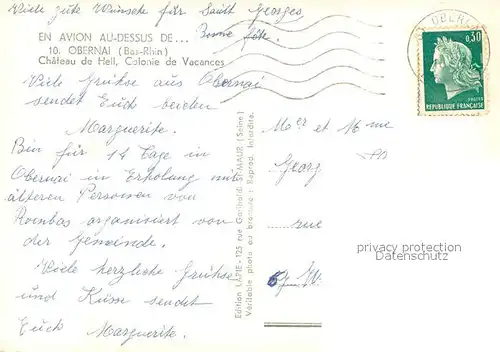 Viele gute Wünsche für Sankt Georges
Bonne fête.
EN AVION AU-DESSUS DE...
10. OBERNAI (Bas-Rhin)
Château de Hell, Colonie de Vacances
Viele Grüsse aus Obernai
sendet Euch beiden
Marguerite.
Bin für 14 Tage in
Obernai in Erholung mit
älteren Personen von
Rombas organisiert von
der Gemeinde.
Viele herzliche Grüsse
und Küsse sendet
Euch Marguerite.
Edition LAPIE - 125 rue Garibaldi ST-MAUR (Seine)
Véritable photo au bromure : Reprod. Interdite.
0,30
REPUBLIQUE FRANÇAISE
POSTES
Mr et Mme
Georg
rue
privacy protection
Datenschutz